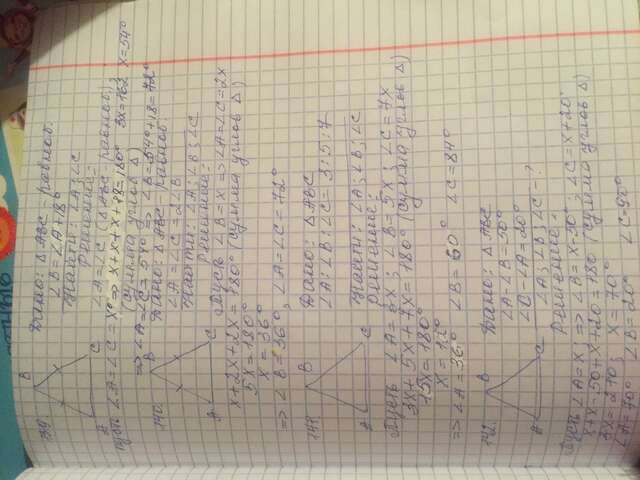 139.
B
A
C
Дано: ΔABC - равноб.
∠B = ∠A + 18
Найти: ∠A; ∠C
Решение:
∠A = ∠C (ΔABC равноб)
Пусть ∠A = ∠C = x° => x + x + x + 18 = 180°; 3x = 162 x = 54°
(сумма углов Δ)
=> ∠A = ∠C = 54° => ∠B = 54° + 18 = 72°
140.
B
A
C
Дано: ΔABC - равноб.
∠A = ∠C = 2∠B
Найти: ∠A; ∠B; ∠C
Решение:
Пусть ∠B = x => ∠A = ∠C = 2x
x + 2x + 2x = 180° (сумма углов Δ)
5x = 180°
x = 36°
=> ∠B = 36°, ∠A = ∠C = 72°
141
B
A
C
Дано: ΔABC
∠A : ∠B : ∠C = 3 : 5 : 7
Найти: ∠A; ∠B; ∠C
Решение:
Пусть ∠A = 3x; ∠B = 5x; ∠C = 7x
3x + 5x + 7x = 180° (сумма углов Δ)
15x = 180°
x = 12°
=> ∠A = 36° ∠B = 60° ∠C = 84°
142.
B
A
C
Дано: ΔABC
∠A - ∠B = 50°
∠C - ∠A = 20°
∠A; ∠B; ∠C - ?
Решение:
Пусть ∠A = x; => ∠B = x - 50°; ∠C = x + 20°
x + x - 50 + x + 20 = 180 (сумма углов Δ)
3x = 210; x = 70°
∠A = 70° ∠B = 20° ∠C = 90°